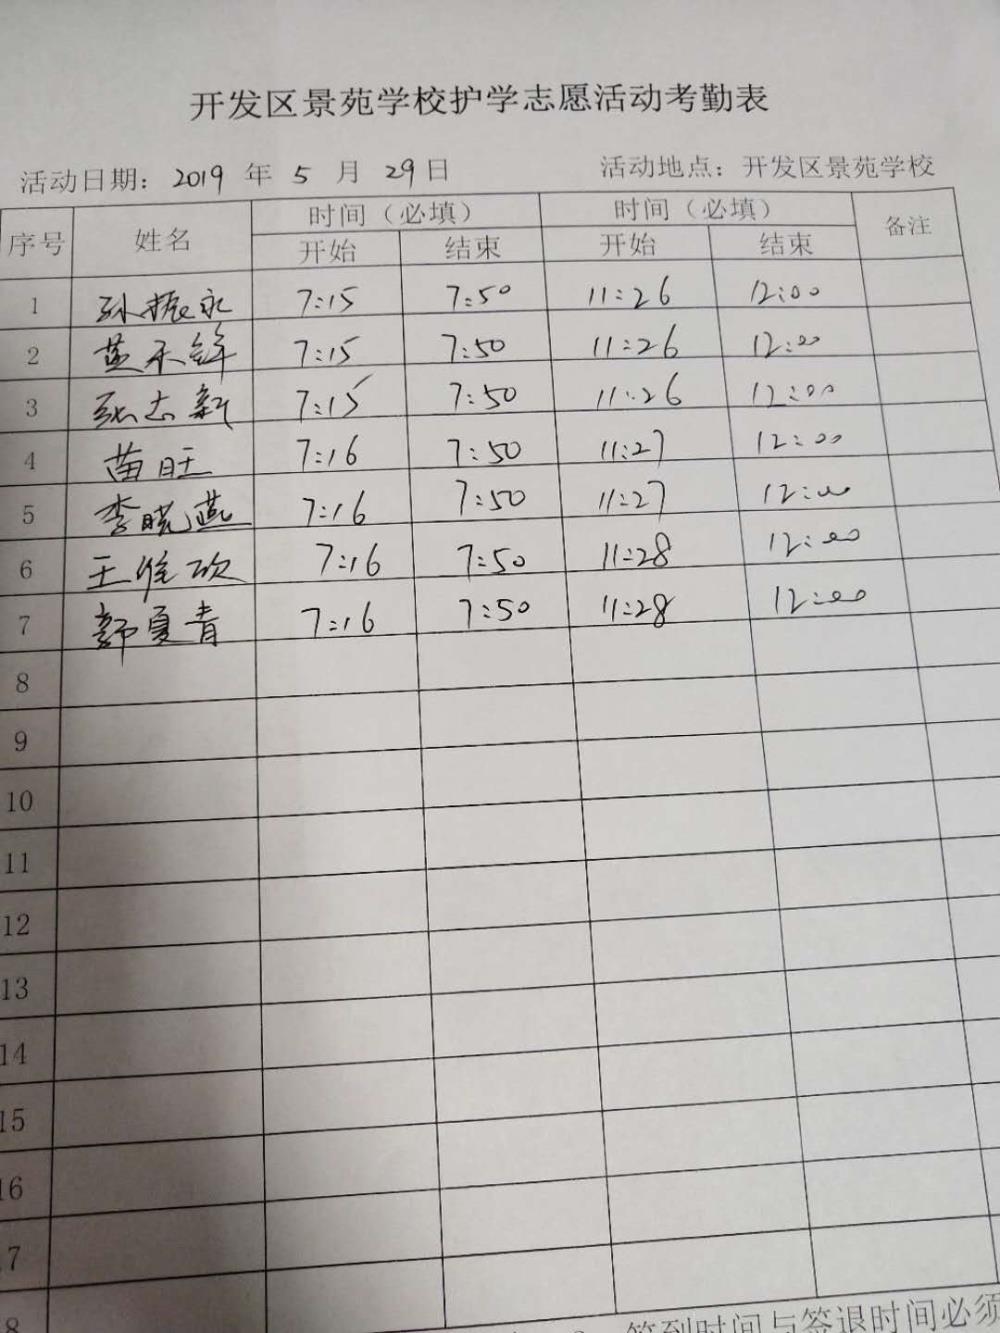 开发区景苑学校护学志愿活动考勤表
活动日期：2019 年 5 月 29 日 活动地点：开发区景苑学校
序号 姓名 时间（必填） 时间（必填） 备注
开始 结束 开始 结束
1 孙振永 7:15 7:50 11:26 12:00
2 7:15 7:50 11:26 12:00
3 张志新 7:15 7:50 11:26 12:00
4 苗旺 7:16 7:50 11:27 12:00
5 李晓燕 7:16 7:50 11:27 12:00
6 王维 7:16 7:50 11:28 12:00
7 郭夏青 7:16 7:50 11:28 12:00
8
9
10
11
12
13
14
15
16
17
8
签到时间与签退时间必须